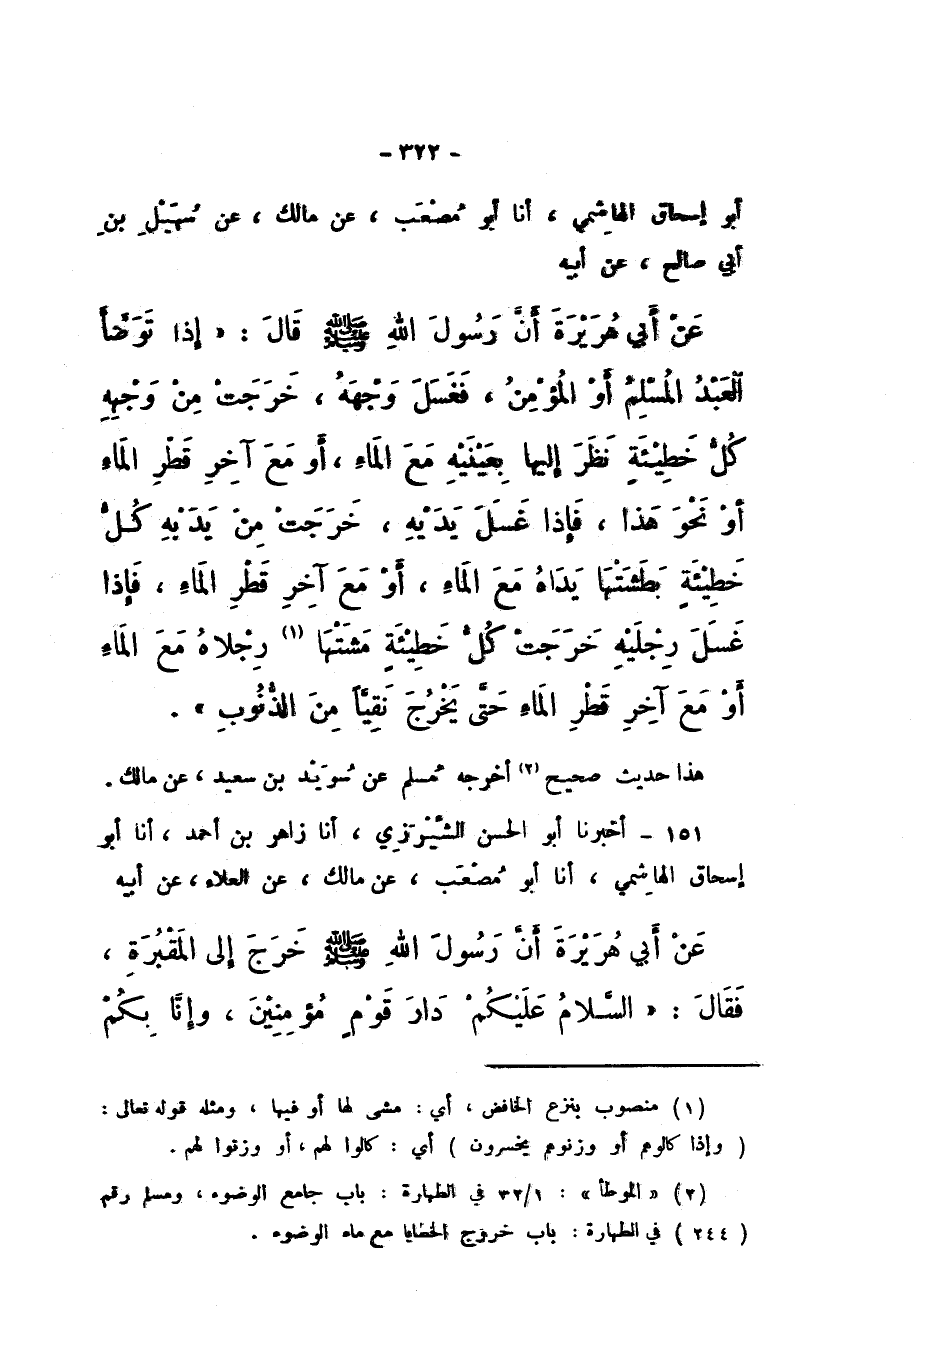 - ٣٢٢ -
أبو إسحاق الهاشمي ، أنا أبو مُصْعَب ، عن مالك ، عن سُهَيْلِ بنِ
أبي صالح ، عن أبيه
عَنْ أَبي هُرَيْرَةَ أَنَّ رَسُولَ اللهِ ﷺ قَالَ : « إذا تَوَضَّأَ
العَبْدُ المُسْلِمُ أَوْ المُؤْمِنُ ، فَغَسَلَ وَجْهَهُ ، خَرَجَتْ مِنْ وَجْهِهِ
كُلُّ خَطِيْئَةٍ نَظَرَ إليها بِعَيْنَيْهِ مَعَ المَاءِ ، أَو مَعَ آخِرِ قَطْرِ المَاءِ
أَوْ نَحْوَ هَذا ، فَإِذا غَسَلَ يَدَيْهِ ، خَرَجَتْ مِنْ يَدَيْهِ كُلُّ
خَطِيْئَةٍ بَطَشَتْهَا يَدَاهُ مَعَ المَاءِ ، أَوْ مَعَ آخِرِ قَطْرِ المَاءِ ، فَإِذا
غَسَلَ رِجْلَيْهِ خَرَجَتْ كُلُّ خَطِيْئَةٍ مَشَتْهَا (١) رِجْلاهُ مَعَ المَاءِ
أَوْ مَعَ آخِرِ قَطْرِ المَاءِ حَتَّى يَخْرُجَ نَقِيَّاً مِنَ الذُّنُوبِ » .
هذا حديث صحيح (٢) أخرجه مُسلم عن سُوَيْد بن سعيد ، عن مالك .
١٥١ - أخبرنا أبو الحسن الشَّيْرَزي ، أنا زاهر بن أحمد ، أنا أبو
إسحاق الهاشمي ، أنا أبو مُصْعَب ، عن مالك ، عن العلاء ، عن أبيه
عَنْ أَبي هُرَيْرَةَ أَنَّ رَسُولَ اللهِ ﷺ خَرَجَ إلى المَقْبُرَةِ ،
فَقَالَ : « السَّلامُ عَلَيْكُمْ دَارَ قَوْمٍ مُؤمِنِيْنَ ، وإنَّا بِكُمْ
(١) منصوب بنزع الخافض ، أي : مشى لها أو فيها ، ومثله قوله تعالى :
( وإذا كالوهم أو وزنوهم يخسرون ) أي : كالوا لهم ، أو وزنوا لهم .
(٢) « الموطأ » : ٣٢/١ في الطهارة : باب جامع الوضوء ، ومسلم رقم
( ٢٤٤ ) في الطهارة : باب خروج الخطايا مع ماء الوضوء .